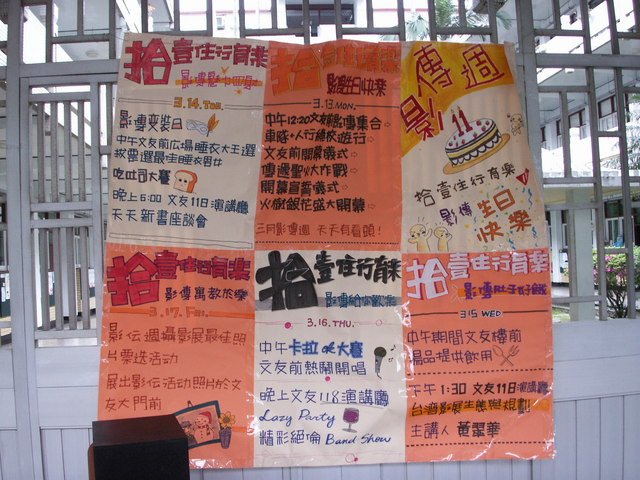 影傳週
11
拾壹住行育樂
影傳生日快樂
拾壹住行育樂
影傳生日快樂
3.13.MON.
中午12:20文友館影傳集合
車隊、人行繞校遊行
文友前開幕儀式
傳週聖火大作戰
開幕宣誓儀式
火樹銀花盛大開幕
三月影傳週 天天有看頭!
拾壹住行育樂
3.14.TUE.
影傳變裝日
中午文友前広場睡衣大王選
投票選最佳睡衣男女
吃吐司大賽
晚上6:00 文友11日演講廳
天天新書座談會
拾壹住行育樂
影傳肚子好餓
3.15 WED
中午期間文友樓前
湯品提供飲用
下午1:30 文友11日演講廳
台灣影展生態與規劃
主講人 黃翠華
拾壹住行育樂
影傳給你歡樂
3.16.THU.
中午卡拉ok大賽
文友前熱鬧開唱
晚上文友118演講廳
Lazy Party
精彩絕倫 Band Show
拾壹住行育樂
影傳寓教於樂
3.17.Fri.
影伝週攝影展最佳照
片票选活动
展出影伝活动照片於文
友大門前